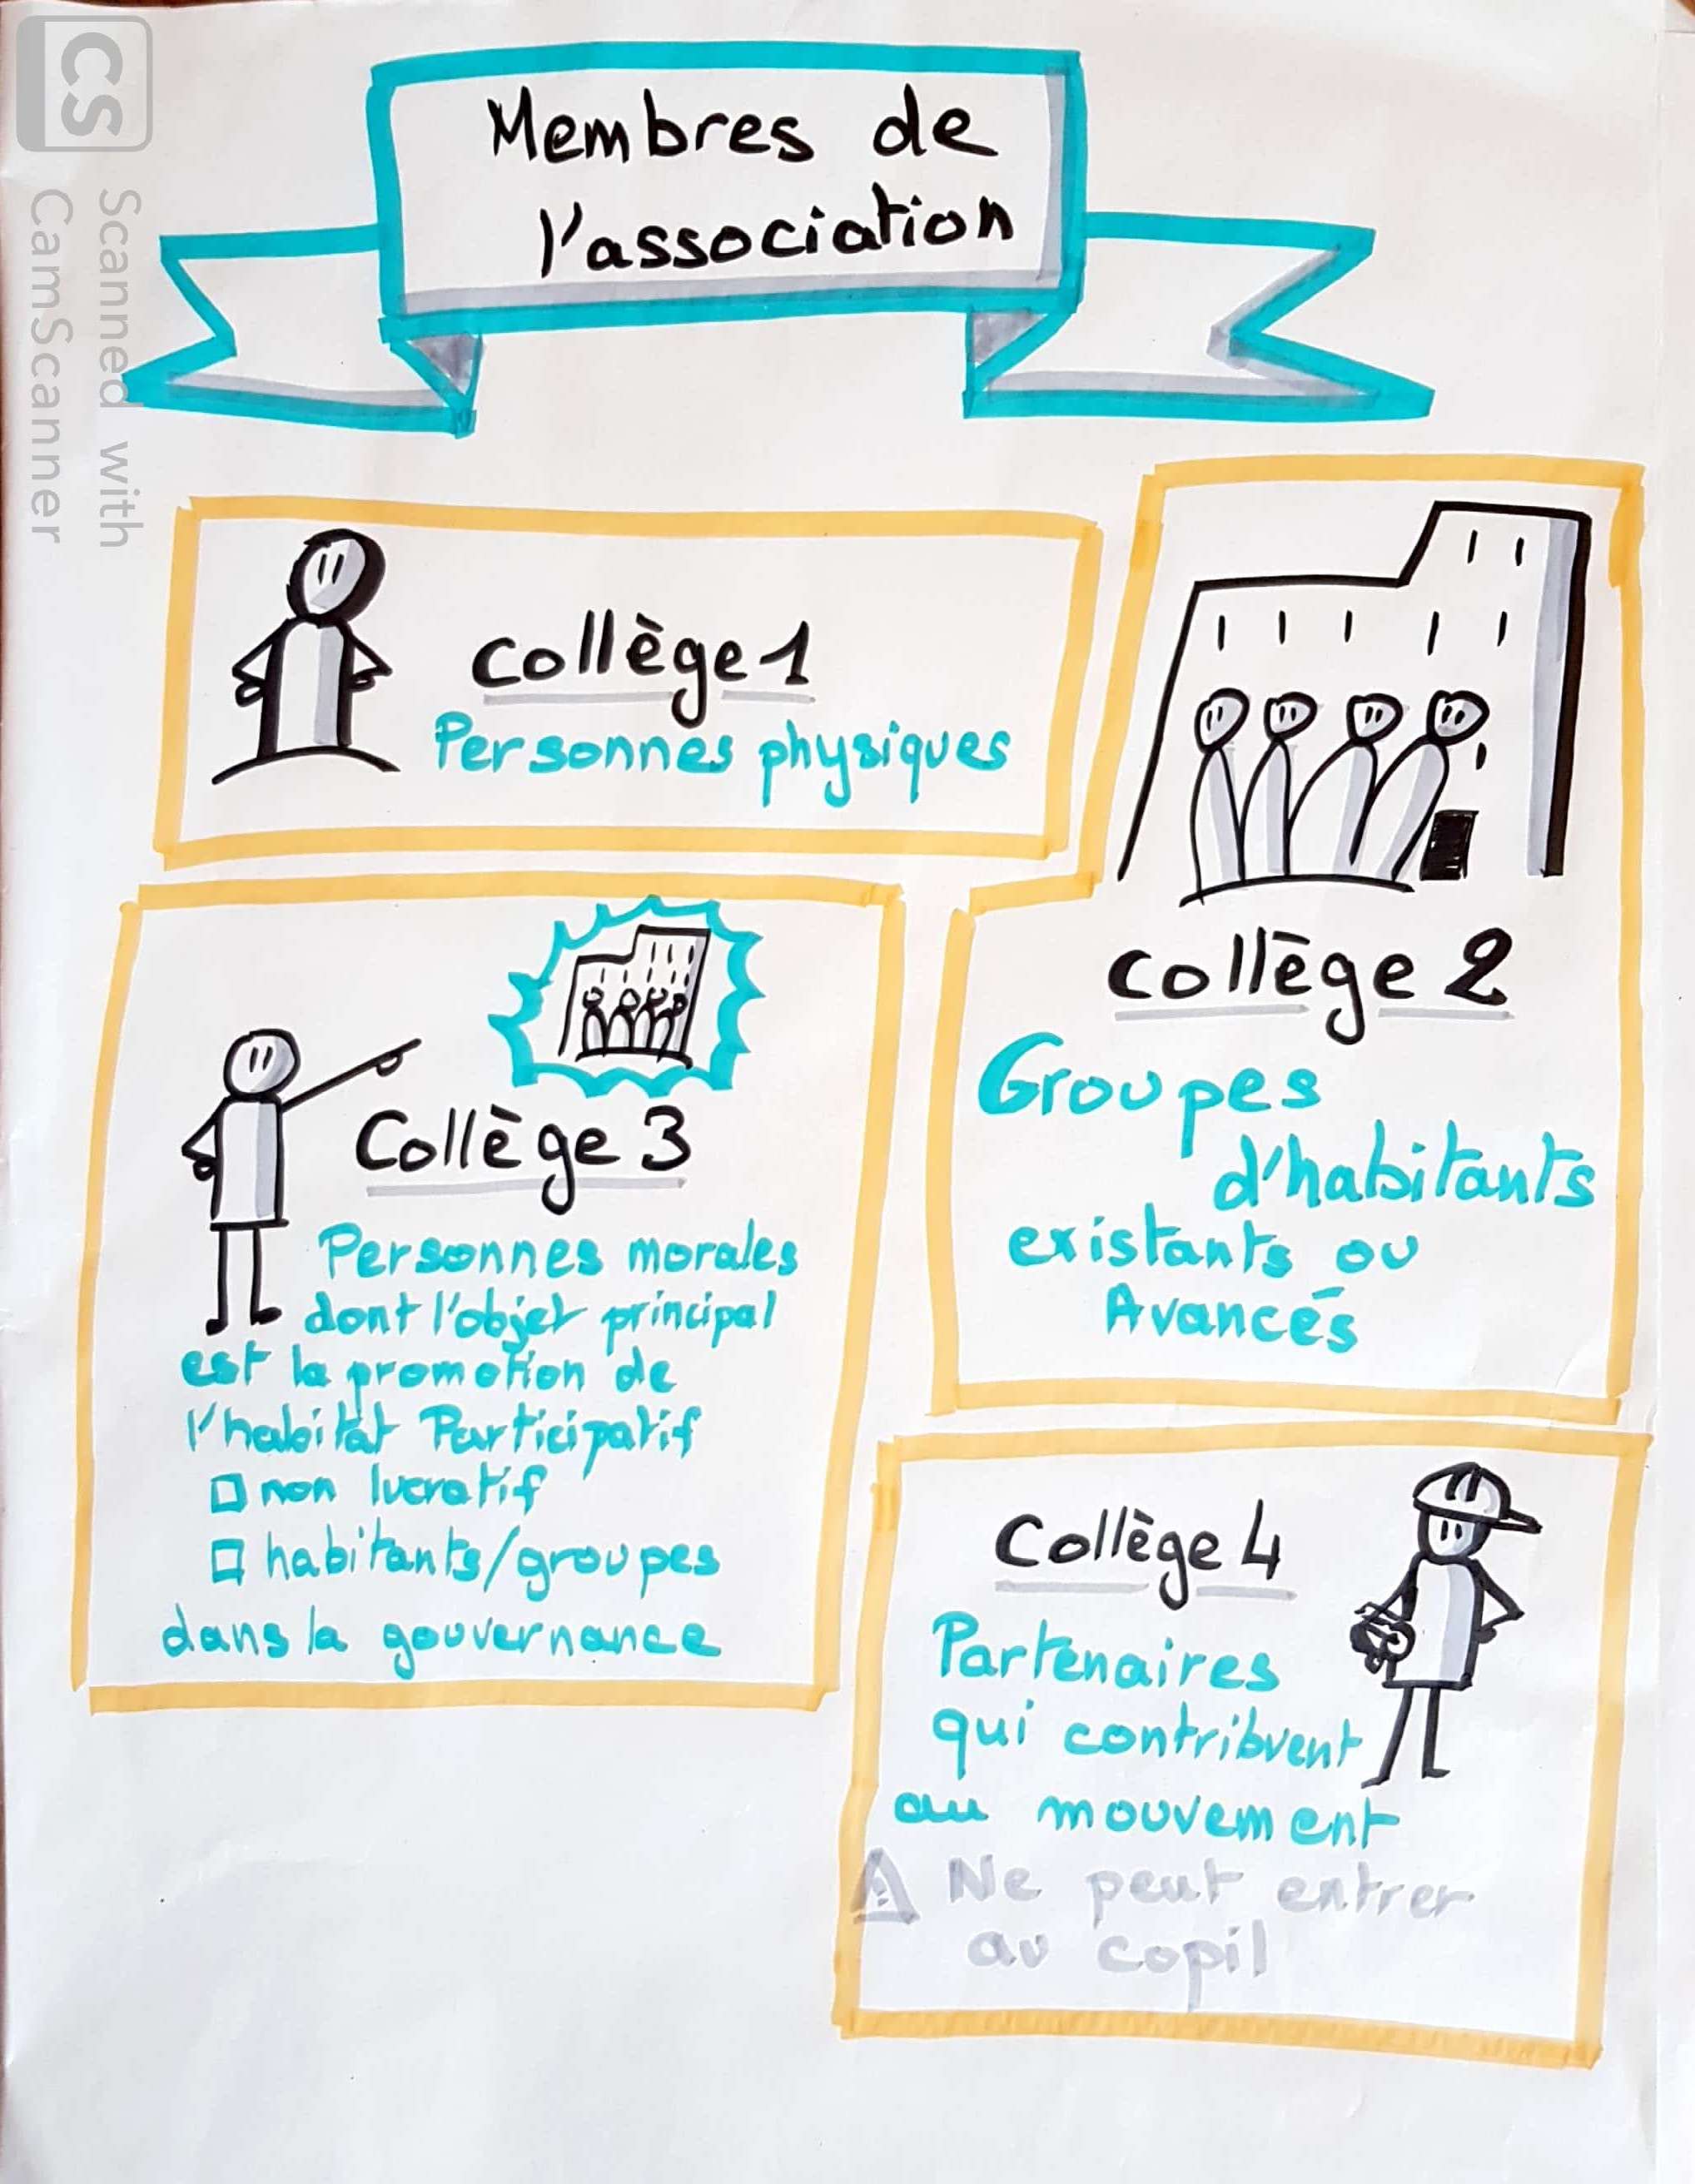 CS
Scanned with
CamScanner
Membres de
l'association
Collège 1
Personnes physiques
Collège 2
Groupes
d'habitants
existants ou
Avancés
Collège 3
Personnes morales
dont l'objet principal
est la promotion de
l'habitat Participatif
non lucratif
habitants/groupes
dans la gouvernance
Collège 4
Partenaires
qui contribuent
au mouvement
Ne peut entrer
au copil